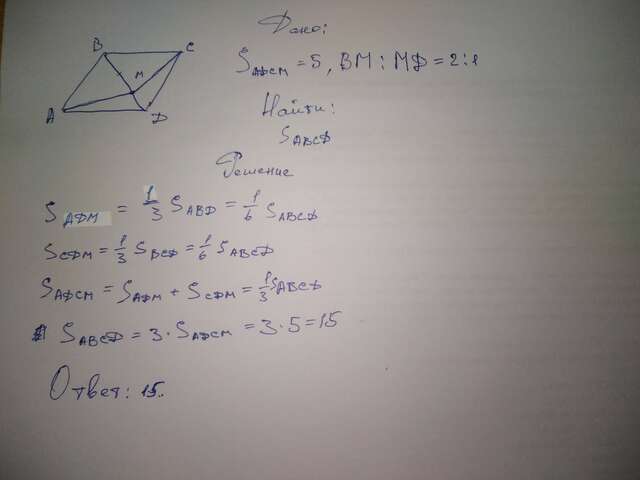 Дано:
B C
S ADCM = 5, BM : MD = 2:1
M
Найти:
A D
S ABCD
Решение
S ADM = 1/3 S ABD = 1/6 S ABCD
S CDM = 1/3 S BCD = 1/6 S ABCD
S ADCM = S ADM + S CDM = 1/3 S ABCD
S ABCD = 3 · S ADCM = 3 · 5 = 15
Ответ: 15.